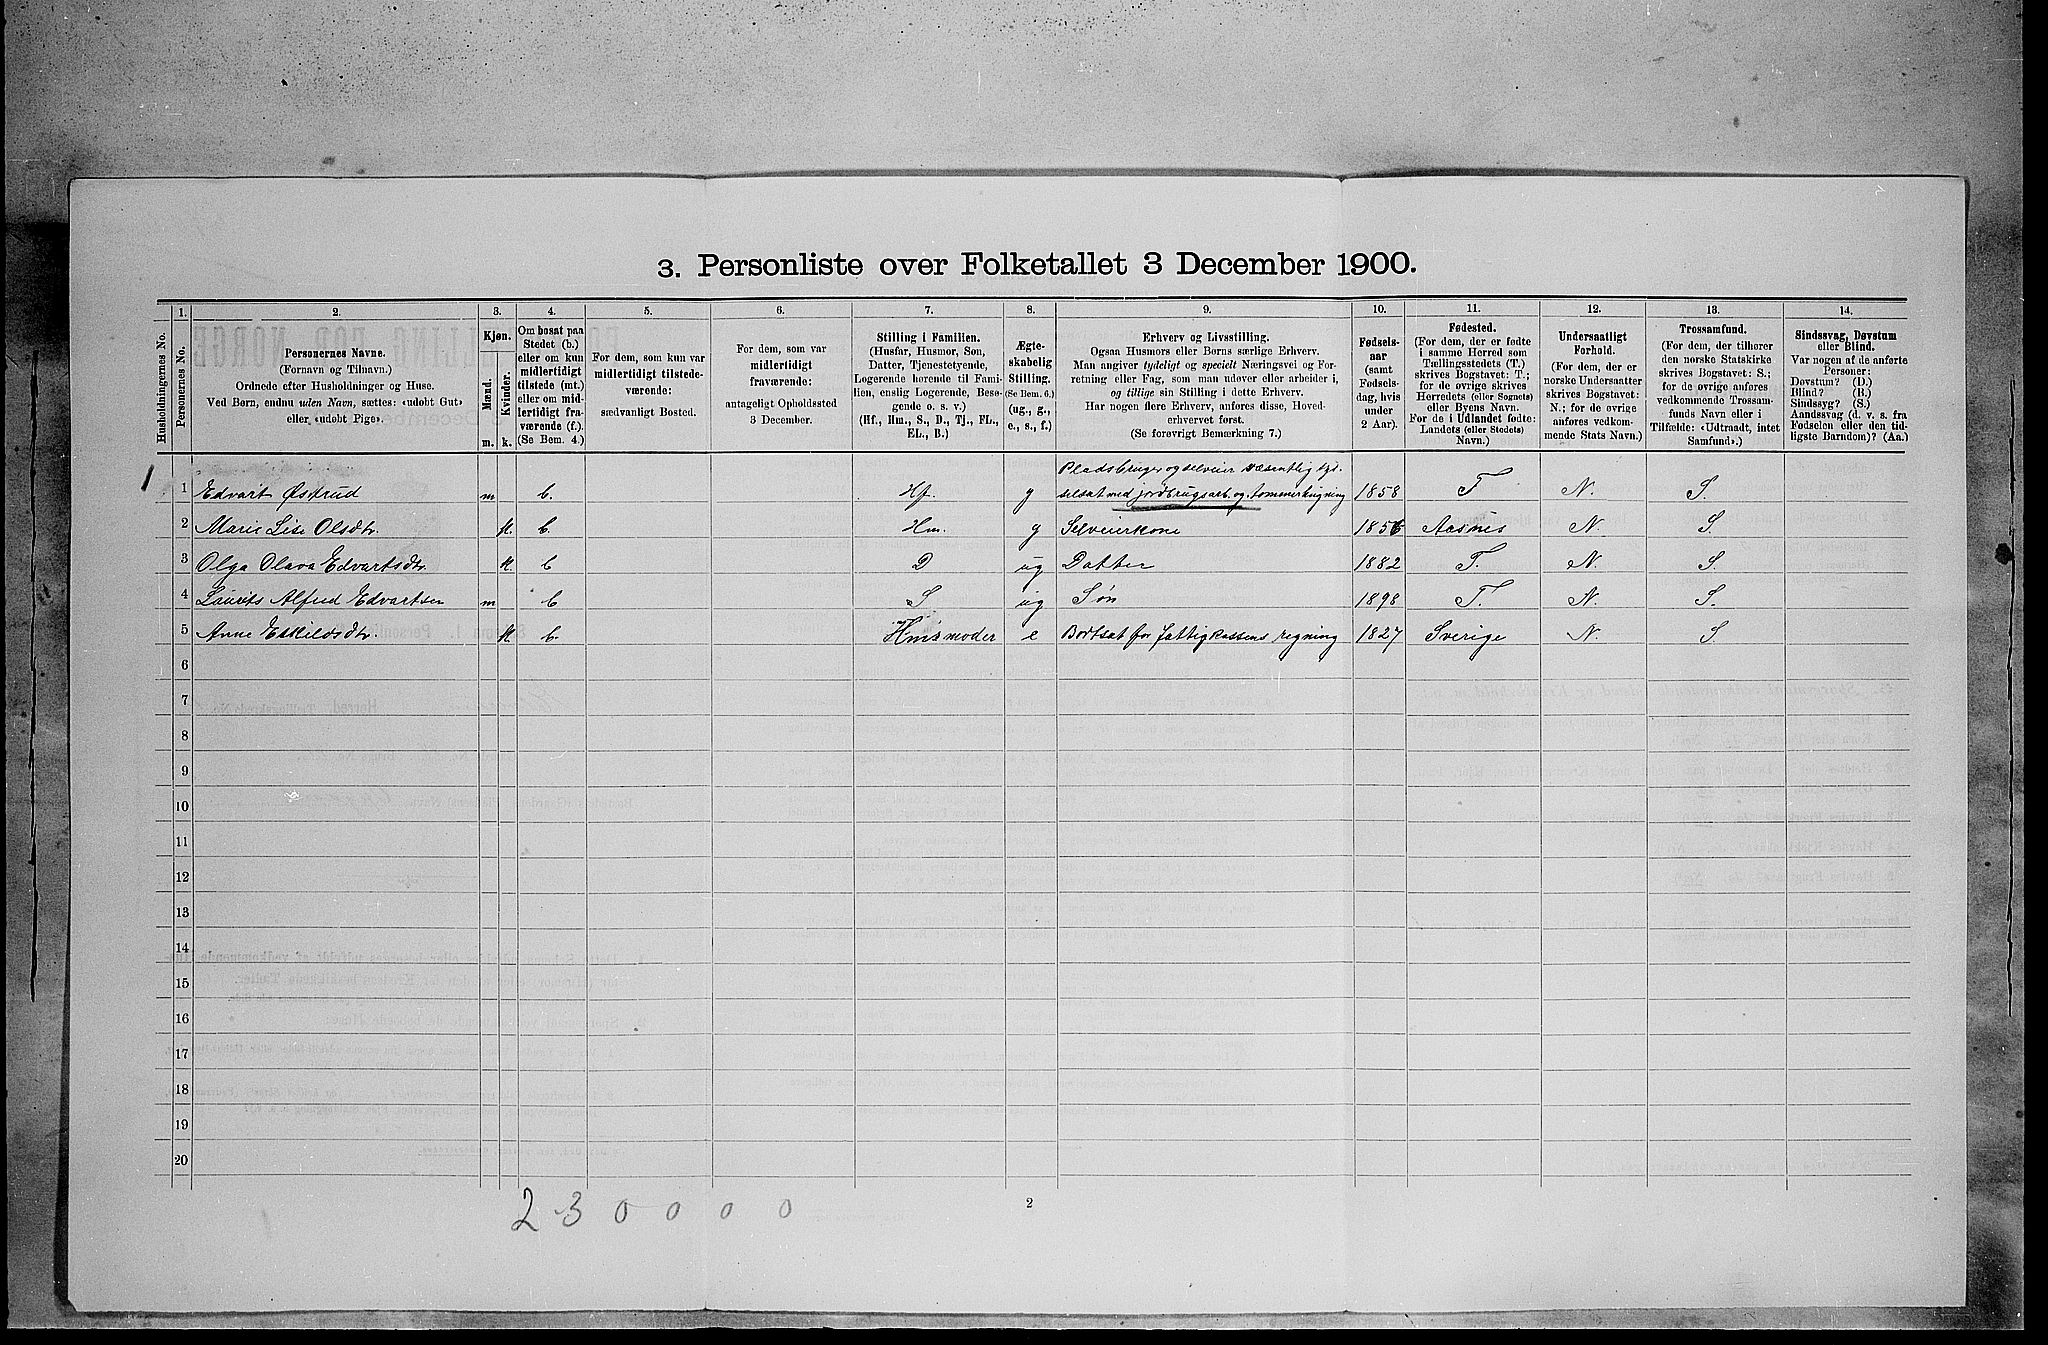 3. Personliste over Folketallet 3 December 1900.
1. 2. 3. 4. 5. 6. 7. 8. 9. 10. 11. 12. 13. 14.
Husholdningernes No.
Personernes No.
Personernes Navne.
(Fornavn og Tilnavn.)
Ordnede efter Husholdninger og Huse.
Ved Børn, endnu uden Navn, sættes: «udøbt Gut»
eller «udøbt Pige».
Kjøn.
Mænd.
Kvinder.
m. k.
Om bosat paa
Stedet (b.)
eller om kun
midlertidigt
tilstede (mt.)
eller om mid-
lertidigt fra-
værende (f.).
(Se Bem. 4.)
For dem, som kun var
midlertidigt tilstede-
værende:
sædvanligt Bosted.
For dem, som var
midlertidigt
fraværende:
antageligt Opholdssted
3 December.
Stilling i Familien.
(Husfar, Husmor, Søn,
Datter, Tjenestetyende,
Logerende hørende til Fami-
lien, enslig Logerende, Besø-
gende o. s. v.)
(Hf., Hm., S., D., Tj., FL.,
EL., B.)
Ægte-
skabelig
Stilling.
(Se Bem. 6.)
(ug., g.,
e., s., f.)
Erhverv og Livsstilling.
Ogsaa Husmors eller Børns særlige Erhverv.
Man angiver tydeligt og specielt Næringsvei og For-
retning eller Fag, som man udøver eller arbeider i,
og tillige sin Stilling i dette Erhverv.
Har nogen flere Erhverv, anføres disse, Hoved-
erhvervet først.
(Se forøvrigt Bemærkning 7.)
Fødsels-
aar
(samt
Fødsels-
dag, hvis
under
2 Aar).
Fødested.
(For dem, der er fødte
i samme Herred som
Tællingsstedets (T.)
skrives Bogstavet: T.;
for de øvrige skrives
Herredets (eller Sognets)
eller Byens Navn.
For de i Udlandet fødte:
Landets (eller Stedets)
Navn.)
Undersaatligt
Forhold.
(For dem, der er
norske Undersaatter
skrives Bogstavet:
N.; for de øvrige
anføres vedkom-
mende Stats Navn.)
Trossamfund.
(For dem, der tilhører
den norske Statskirke
skrives Bogstavet: S.;
for de øvrige anføres
vedkommende Trossam-
funds Navn eller i
Tilfælde: «Udtraadt, intet
Samfund».)
Sindssvag, Døvstum
eller Blind.
Var nogen af de anførte
Personer:
Døvstum? (D.)
Blind? (B.)
Sindssyg? (S.)
Aandssvag (d. v. s. fra
Fødselen eller den tid-
ligste Barndom)? (Aa.)
Pladsbruger og selveier væsentlig syl-
1 1 Edvart Østrud m b. Hf. g selsat med jordbrugsarb. og tømmerhugning 1858 T N. S.
2 Marie Lise Olsdtr. k. b. Hm. g Selveierkone 1856 Aasnes N. S.
3 Olga Olava Edvartsdtr. k. b D ug Datter 1882 T. N. S.
4 Laurits Alfred Edvartsen m b S ug Søn 1898 T. N. S.
5 Anne Eskildsdtr. k. b. Husmoder e Bortsat for fattigkassens regning 1827 Sverige N. S.
6
7
8
9
10
11
12
13
14
15
16
17
18
19
20
2-3 0 0 0 0
2